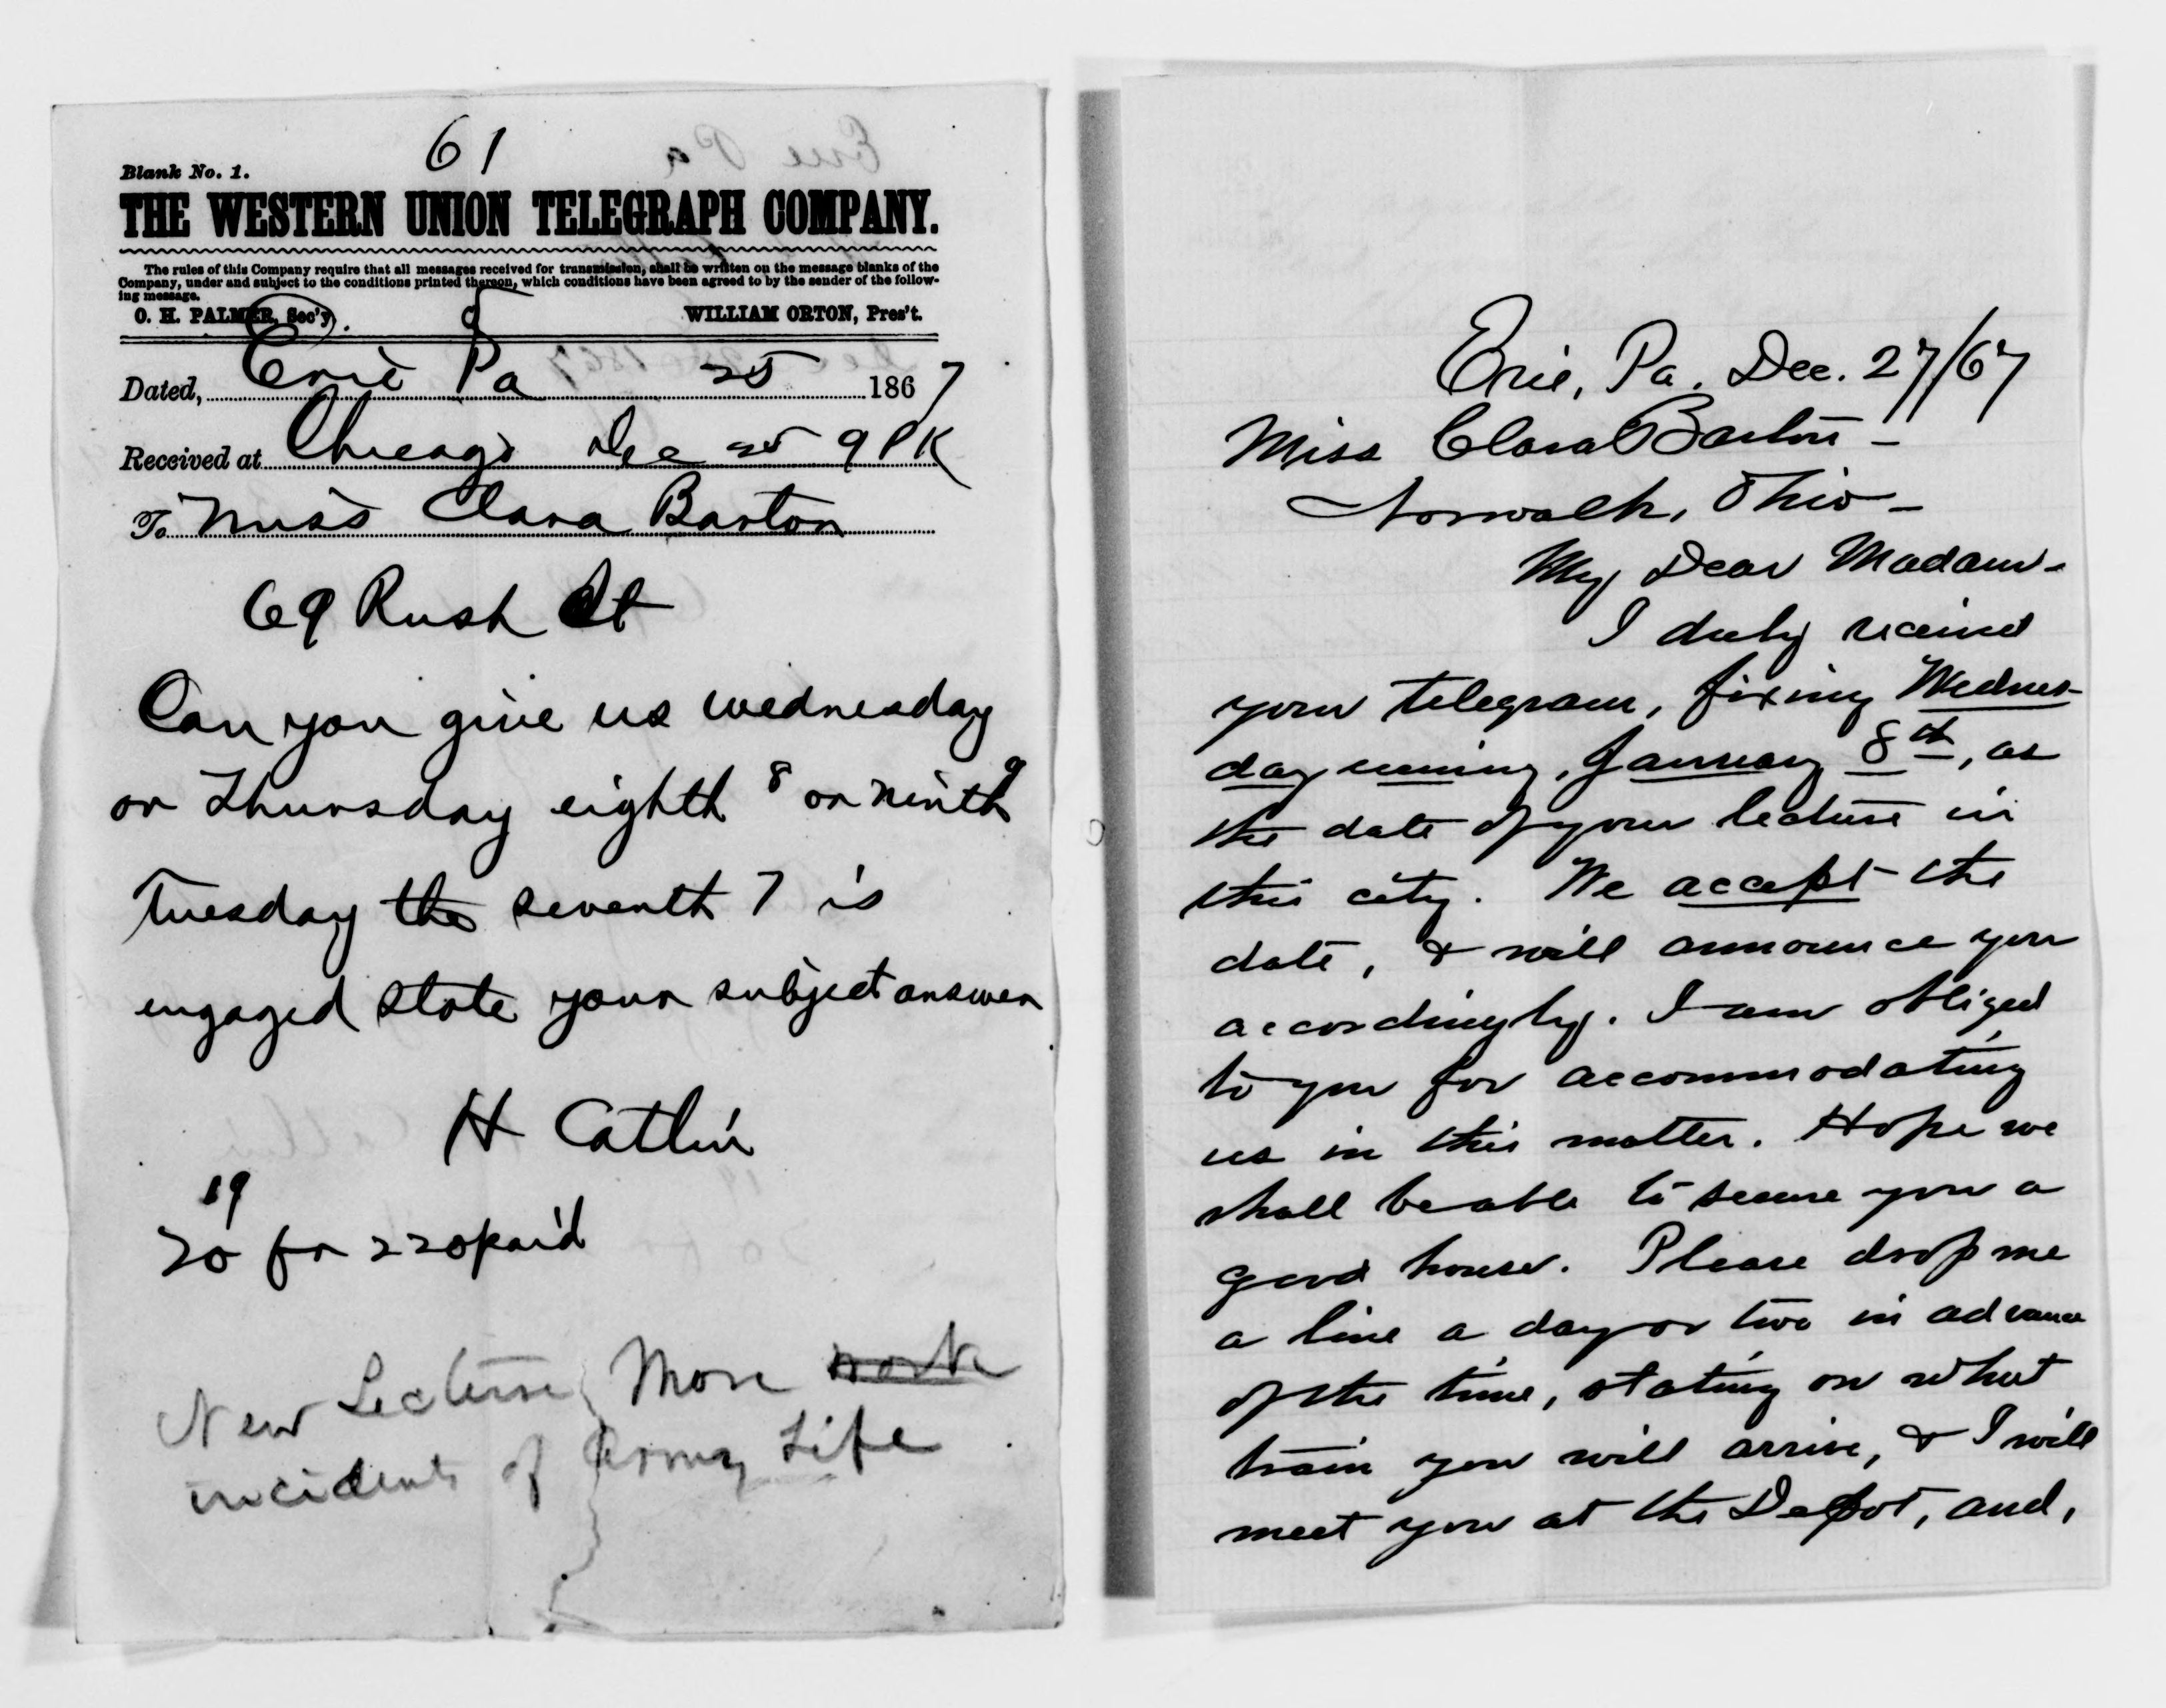 61
Blank No. 1.
THE WESTERN UNION TELEGRAPH COMPANY.
The rules of this Company require that all messages received for transmission, shall be written on the message blanks of the
Company, under and subject to the conditions printed thereon, which conditions have been agreed to by the sender of the follow-
ing message.
O. H. PALMER, Sec'y. WILLIAM ORTON, Pres't.
Dated, Erie Pa 25 1867
Received at Chicago Dec 25 9 PK
To Miss Clara Barton
69 Rush St
Can you give us wednesday
or Thursday eighth 8 or ninth 9
Tuesday the seventh 7 is
engaged state your subject answer
H Catlin
19
20 fr 220 paid
New Lecture More work
incidents of Army Life
Erie, Pa. Dec. 27/67
Miss Clara Barton -
Norwalk, Ohio -
My Dear Madam -
I duly received
your telegram, fixing Wednes-
day evening, January 8th, as
the date of your lecture in
this city. We accept the
date, & will announce you
accordingly. I am obliged
to you for accommodating
us in this matter. Hope we
shall be able to secure you a
good house. Please drop me
a line a day or two in advance
of the time, stating on what
train you will arrive, & I will
meet you at the Depot, and,